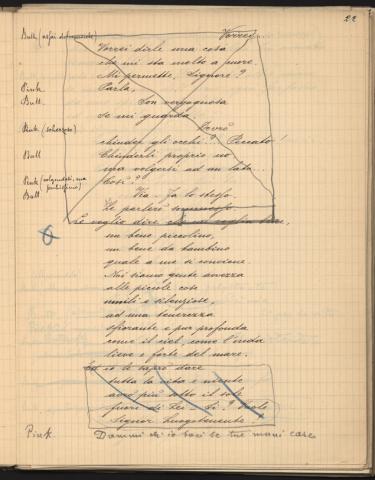 22
Butt. (assai Vorrei...
Vorrei dirle una cosa
che mi sta molto a cuore.
Mi permette, Signore?
Pink Parla.
Butt. Son vergognosa
se mi guarda
Pink (scherzoso) Dovrò
chiuder gli occhi? Peccato!
Butt Chiuderli proprio no
ma volgersi ad un lato..
Pink (volgendosi, ma Così?
Butt Via. Fa lo stesso.
Le parlerò sommesso
Le voglio dire che mi voglia bene,
un bene piccolino,
un bene da bambino
quale a me si conviene.
Noi siamo gente avvezza
alle piccole cose
umili e silenziose,
ad una tenerezza
sfiorante e pur profonda
come il ciel, come l'onda
lieve e forte del mare.
Ed io le saprò dare
tutta la vita e niente
avrò più sotto il sole
fuori di Lei - Sì? Vuole
Signor luogotenente?
Pink Dammi ch'io baci le tue mani care